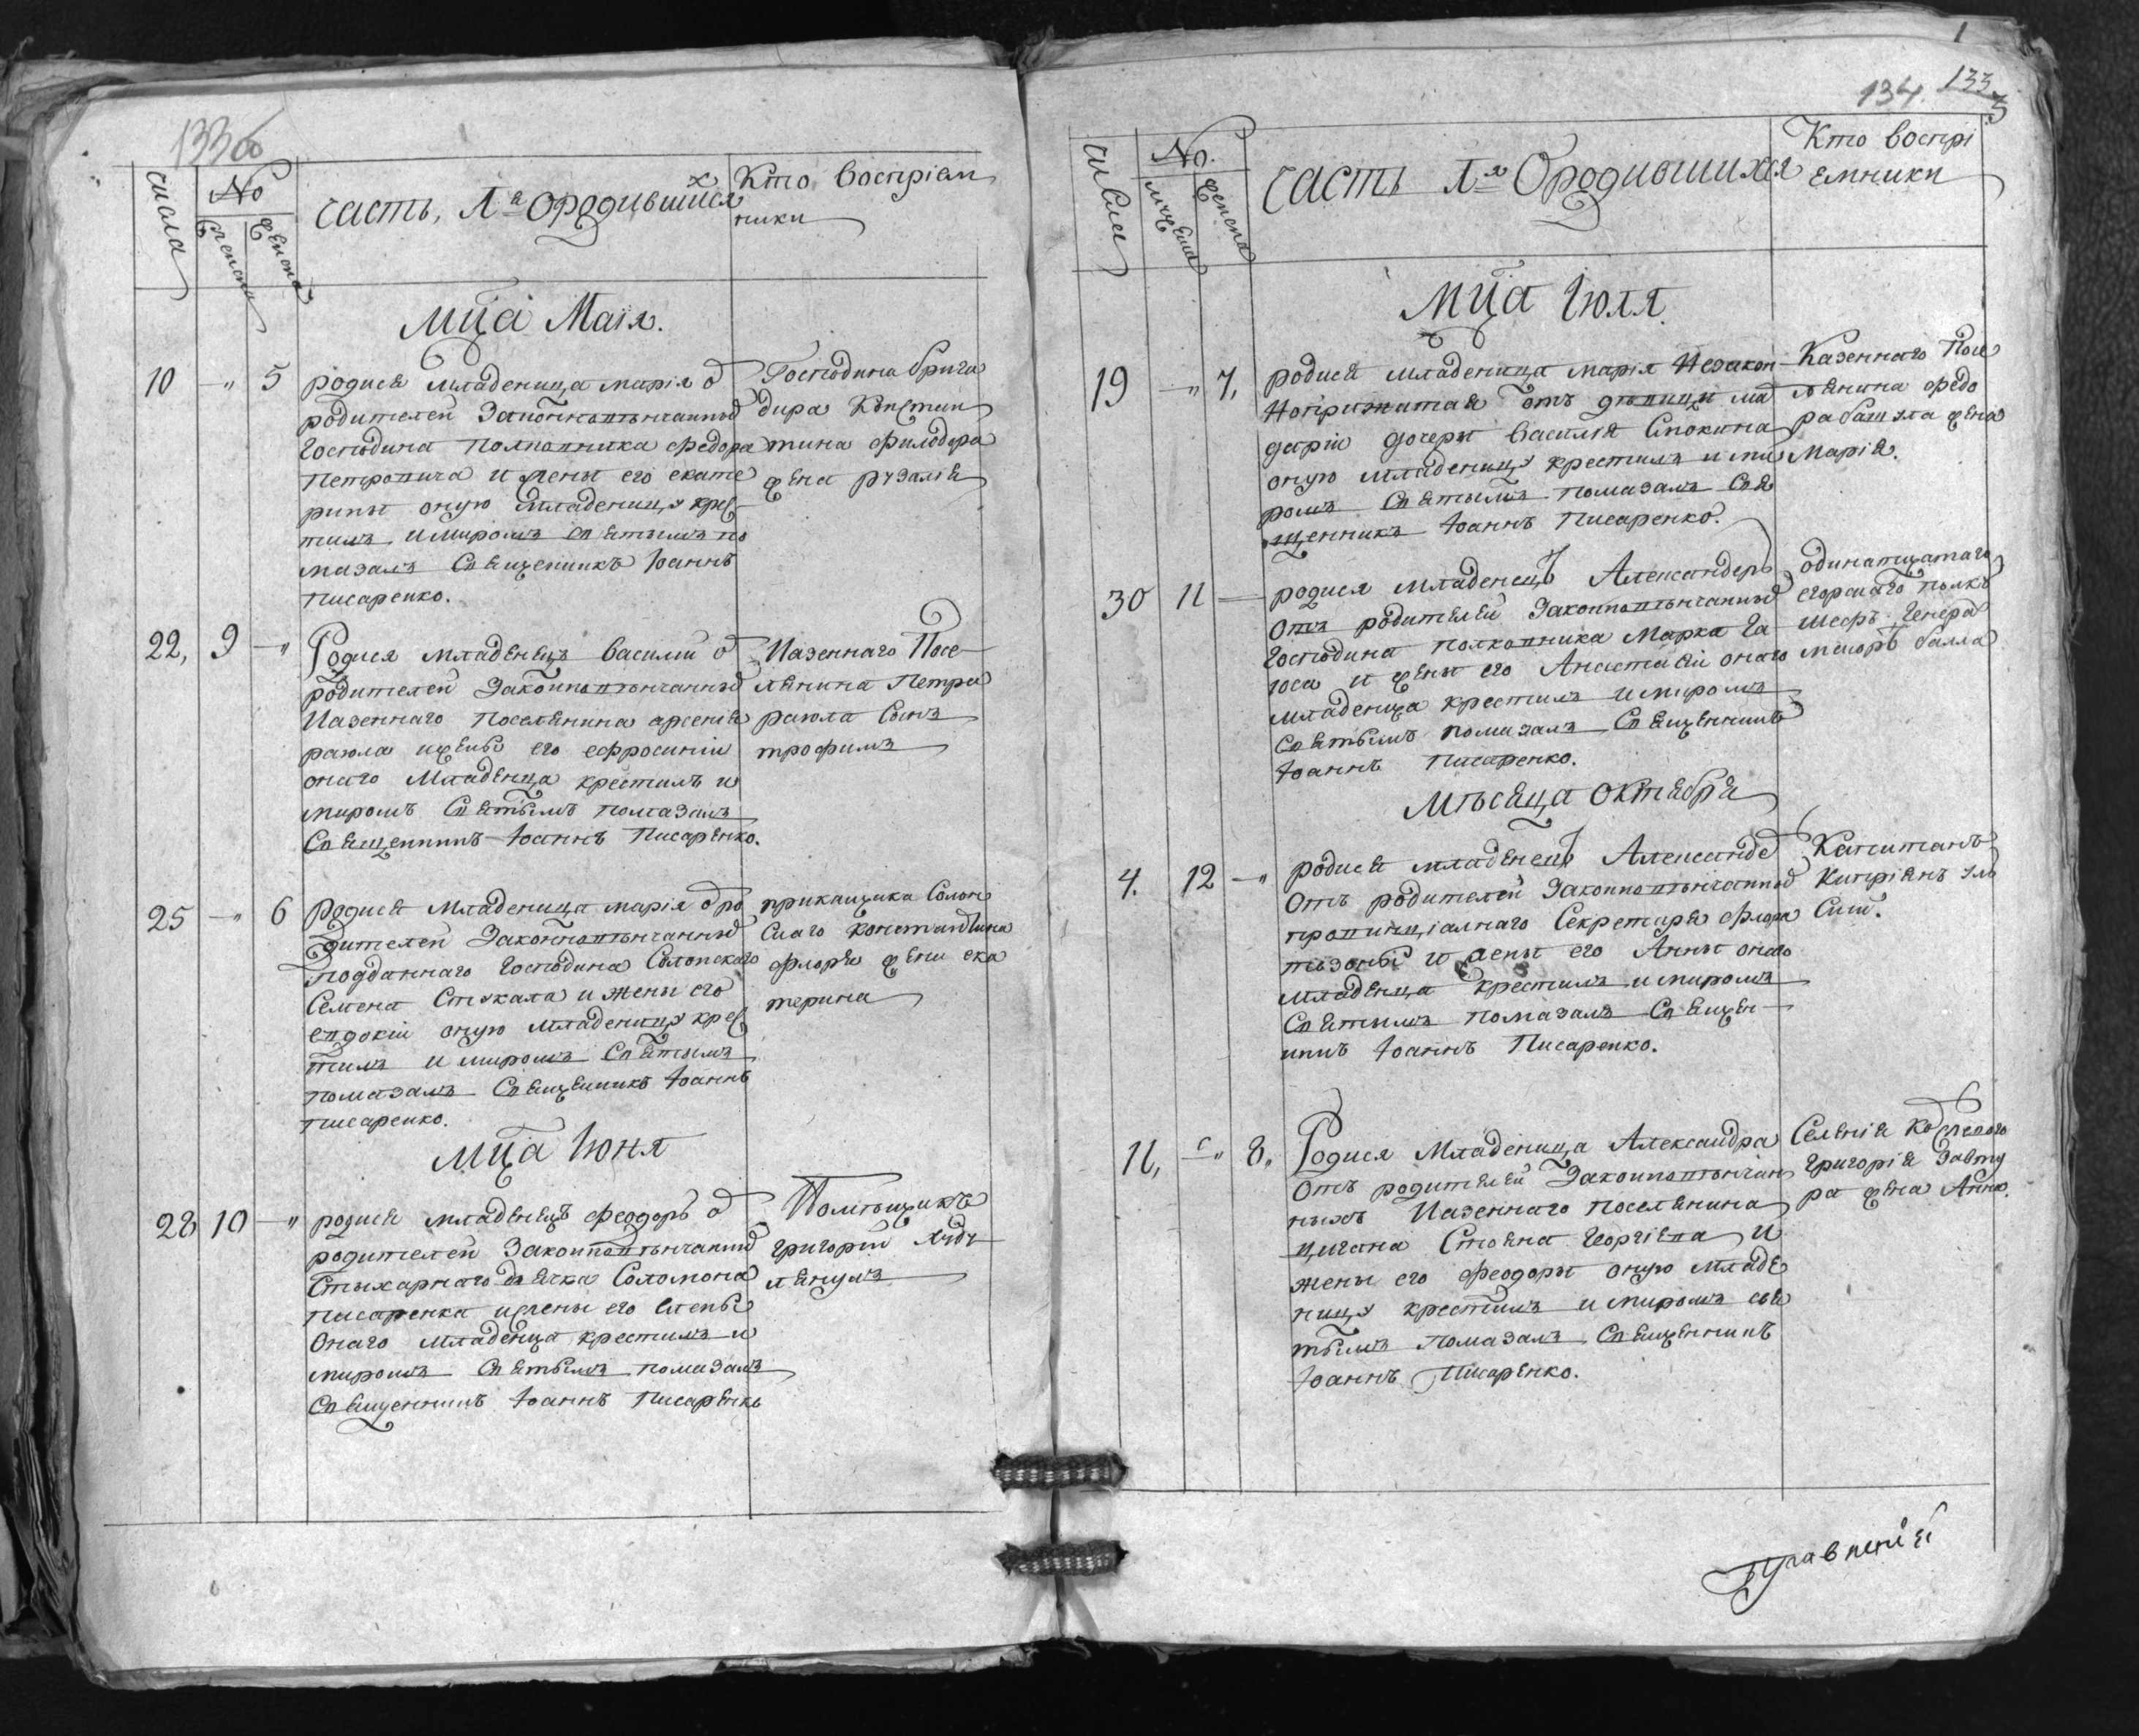 133об
числа
No
женска
часть, 1я о родившихся
Кто воспріем
ники
Мца Маія.
10 " 5
родися младеница марія от
родителей законновѣнчанныхъ
Господина Полковника Федора
Петровича и жены его екате
рины оную младеницу крес
тилъ и миромъ святымъ по
мазалъ Священникъ Іоаннъ
Писаренко.
Господина брига
дира Констан
тина
жена рузалія
22, 9 "
Родися младенецъ Василий от
родителей Законновѣнчанныхъ
Казеннаго поселянина арсенія
раюла и жены его ефросиніи
онаго Младенца крестилъ и
миромъ Святымъ помазалъ
Священникъ Іоаннъ Писаренко.
Казеннаго Посе
лянина Петра
раюла Сынъ
трофимъ
25 " 6
Родися Младеница марія от ро
дителей Законновѣнчанныхъ
подданнаго Господина
Семена Стукала и жены его
евдокіи оную младеницу крес
тилъ и миромъ Святымъ
помазалъ Священникъ Іоаннъ
писаренко.
прикащика
скаго константина
флоря жена ека
терина
Мца Іюня
28 10 "
родися младенецъ феодоръ от
родителей Законновѣнчанныхъ
Стихарнаго дьячка Соломона
писаренка и жены его елены
Онаго младенца крестилъ и
миромъ Святымъ помазалъ
Священникъ Іоаннъ Писаренко
Помѣщикъ
григорій
1
134. 133
числа
No.
мужеска
женска
часть 1я О родившихся
Кто воспрі
емники
Мца Іюля.
19 " 7,
родися младеница марія Незакон
ноприжитая отъ дѣвицы ма
дарія дочери василія Спокина
оную младеницу крестилъ и ми
ромъ Святымъ помазалъ Свя
щенникъ Іоаннъ Писаренко.
Казеннаго Посе
лянина федо
ра жена
Марія.
30 11
родися младенецъ Александеръ
Отъ родителей Законновѣнчанныхъ
Господина полковника Марка Га
юса и жены его Анастасіи онаго
младенца крестилъ и миромъ
Святымъ помазалъ Священникъ
Іоаннъ Писаренко.
одинатцатаго
егорскаго полкъ
шефъ Генера
Мѣсяца Октября
4. 12 "
родися младенецъ Александе
Отъ родителей Законновѣнчанныхъ
провинціалнаго Секретаря флора
и жены его Анны онаго
младенца крестилъ и миромъ
Святымъ помазалъ Священ
никъ Іоаннъ Писаренко.
Капитанъ
Кипріянъ
11, " 8,
Родися Младеница Александра
Отъ родителей Законновѣнчан
ныхъ Казеннаго поселянина
цигана Стояна Георгіева и
жены его феодоры оную младе
ницу крестилъ и миромъ свя
тымъ помазалъ Священникъ
Іоаннъ Писаренко.
Селенія
григорія
ра жена Анна.